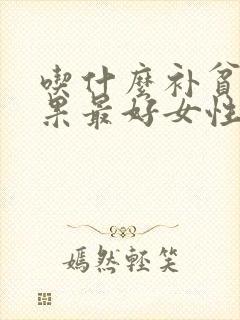 喫什麼补貧
果最好女性
嫣然輕笑